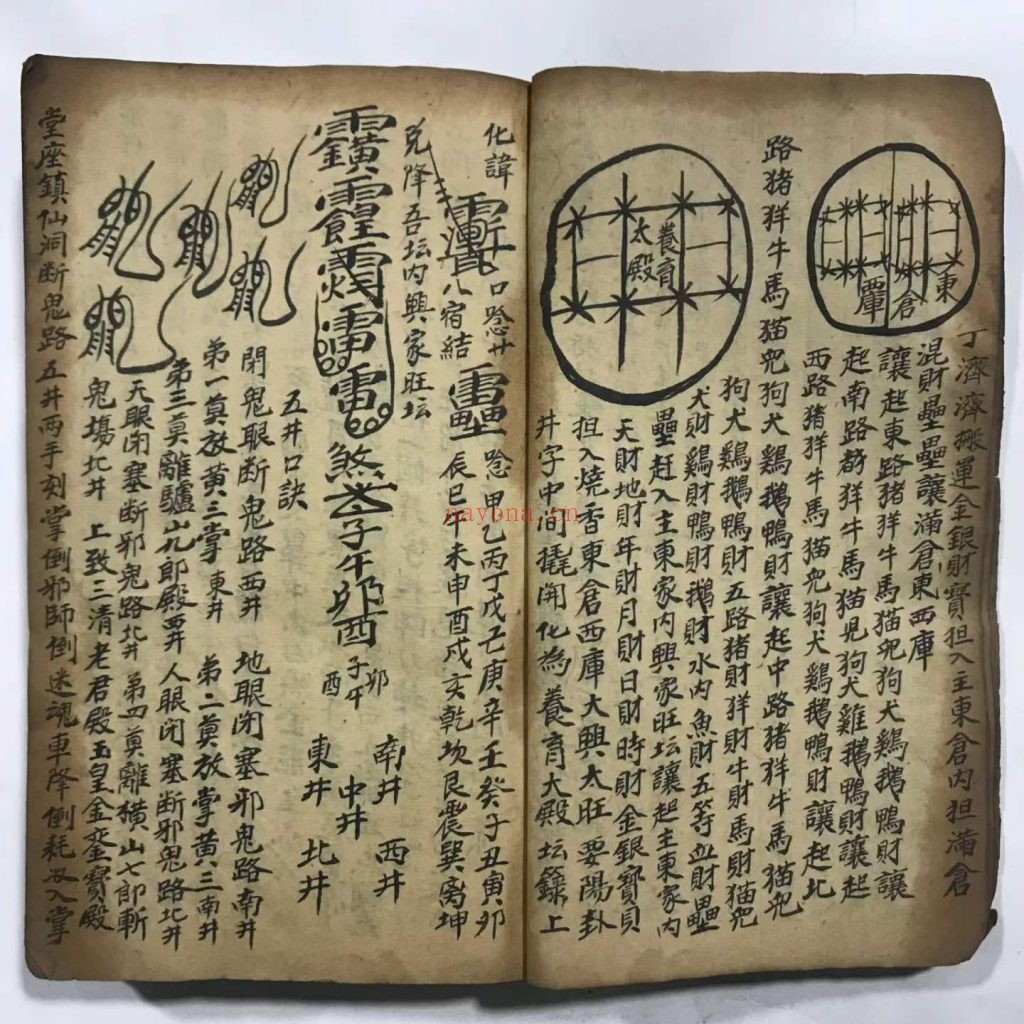 丁濟濟搬運金銀財寶担入主東倉内担滿倉
混財壘壘讓滿倉東西庫
讓起東路猪羊牛馬猫兜狗犬鷄鵝鴨財讓
起南路都羊牛馬猫児狗犬雞鵝鴨財讓起
西路猪羊牛馬猫兜狗犬鷄鵝鴨財讓起北
東
倉
路猪羊牛馬猫兜狗犬鷄鵝鴨財讓起中路猪羊牛馬猫兜
狗犬鷄鵝鴨財五路猪財羊財牛財馬財猫兜
犬財鷄財鴨財鵝財水内魚財五等血財壘
壘赶入主東家内興家旺坛讓起主東家内
天財地財年財月財日財時財金銀寶貝
担入燒香東倉西庫大興太旺要陽卦
井字中间撬開化為養育大殿坛籙上
養育
太殿
化諱
口唸廾八宿結
唸甲乙丙丁戊己庚辛壬癸子丑寅卯
辰巳午未申酉戍亥乾坎艮震巽离坤
兇降吾坛内興家旺坛
煞
子午卯酉
子午
卯
酉
南井 西井
中井
東井 北井
五井口訣
閉鬼眼断鬼路西井 地眼閉塞邪鬼路南井
弟一奠放黄三掌東井 弟二奠放掌黄三南井
弟三奠離驢山九郎殿西井人眼閉塞断邪鬼路北井
天眼閉塞断邪鬼路北井弟四奠離横山七郎斬
鬼塲北井 上致三清老君殿玉皇金銮寶殿
堂座鎮仙洞断鬼路五井两手刻掌倒邪師倒迷魂車降倒耗收入掌
nayona.cn